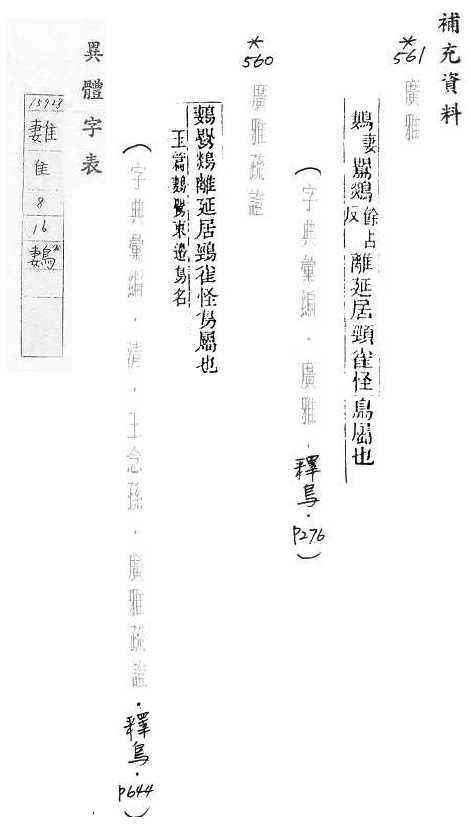 補充資料
*561
廣雅
鶈妻鸓鷃餘占反離延居頸雀怪鳥屬也
(字典彙編.廣雅.釋鳥.p276)
*560
廣雅疏證
離延居鵛雀怪鳥屬也
玉篇東邊鳥名
(字典彙編.清.王念孫.廣雅疏證.釋鳥.p644)
異體字表
15928
隹
8
16
鶈